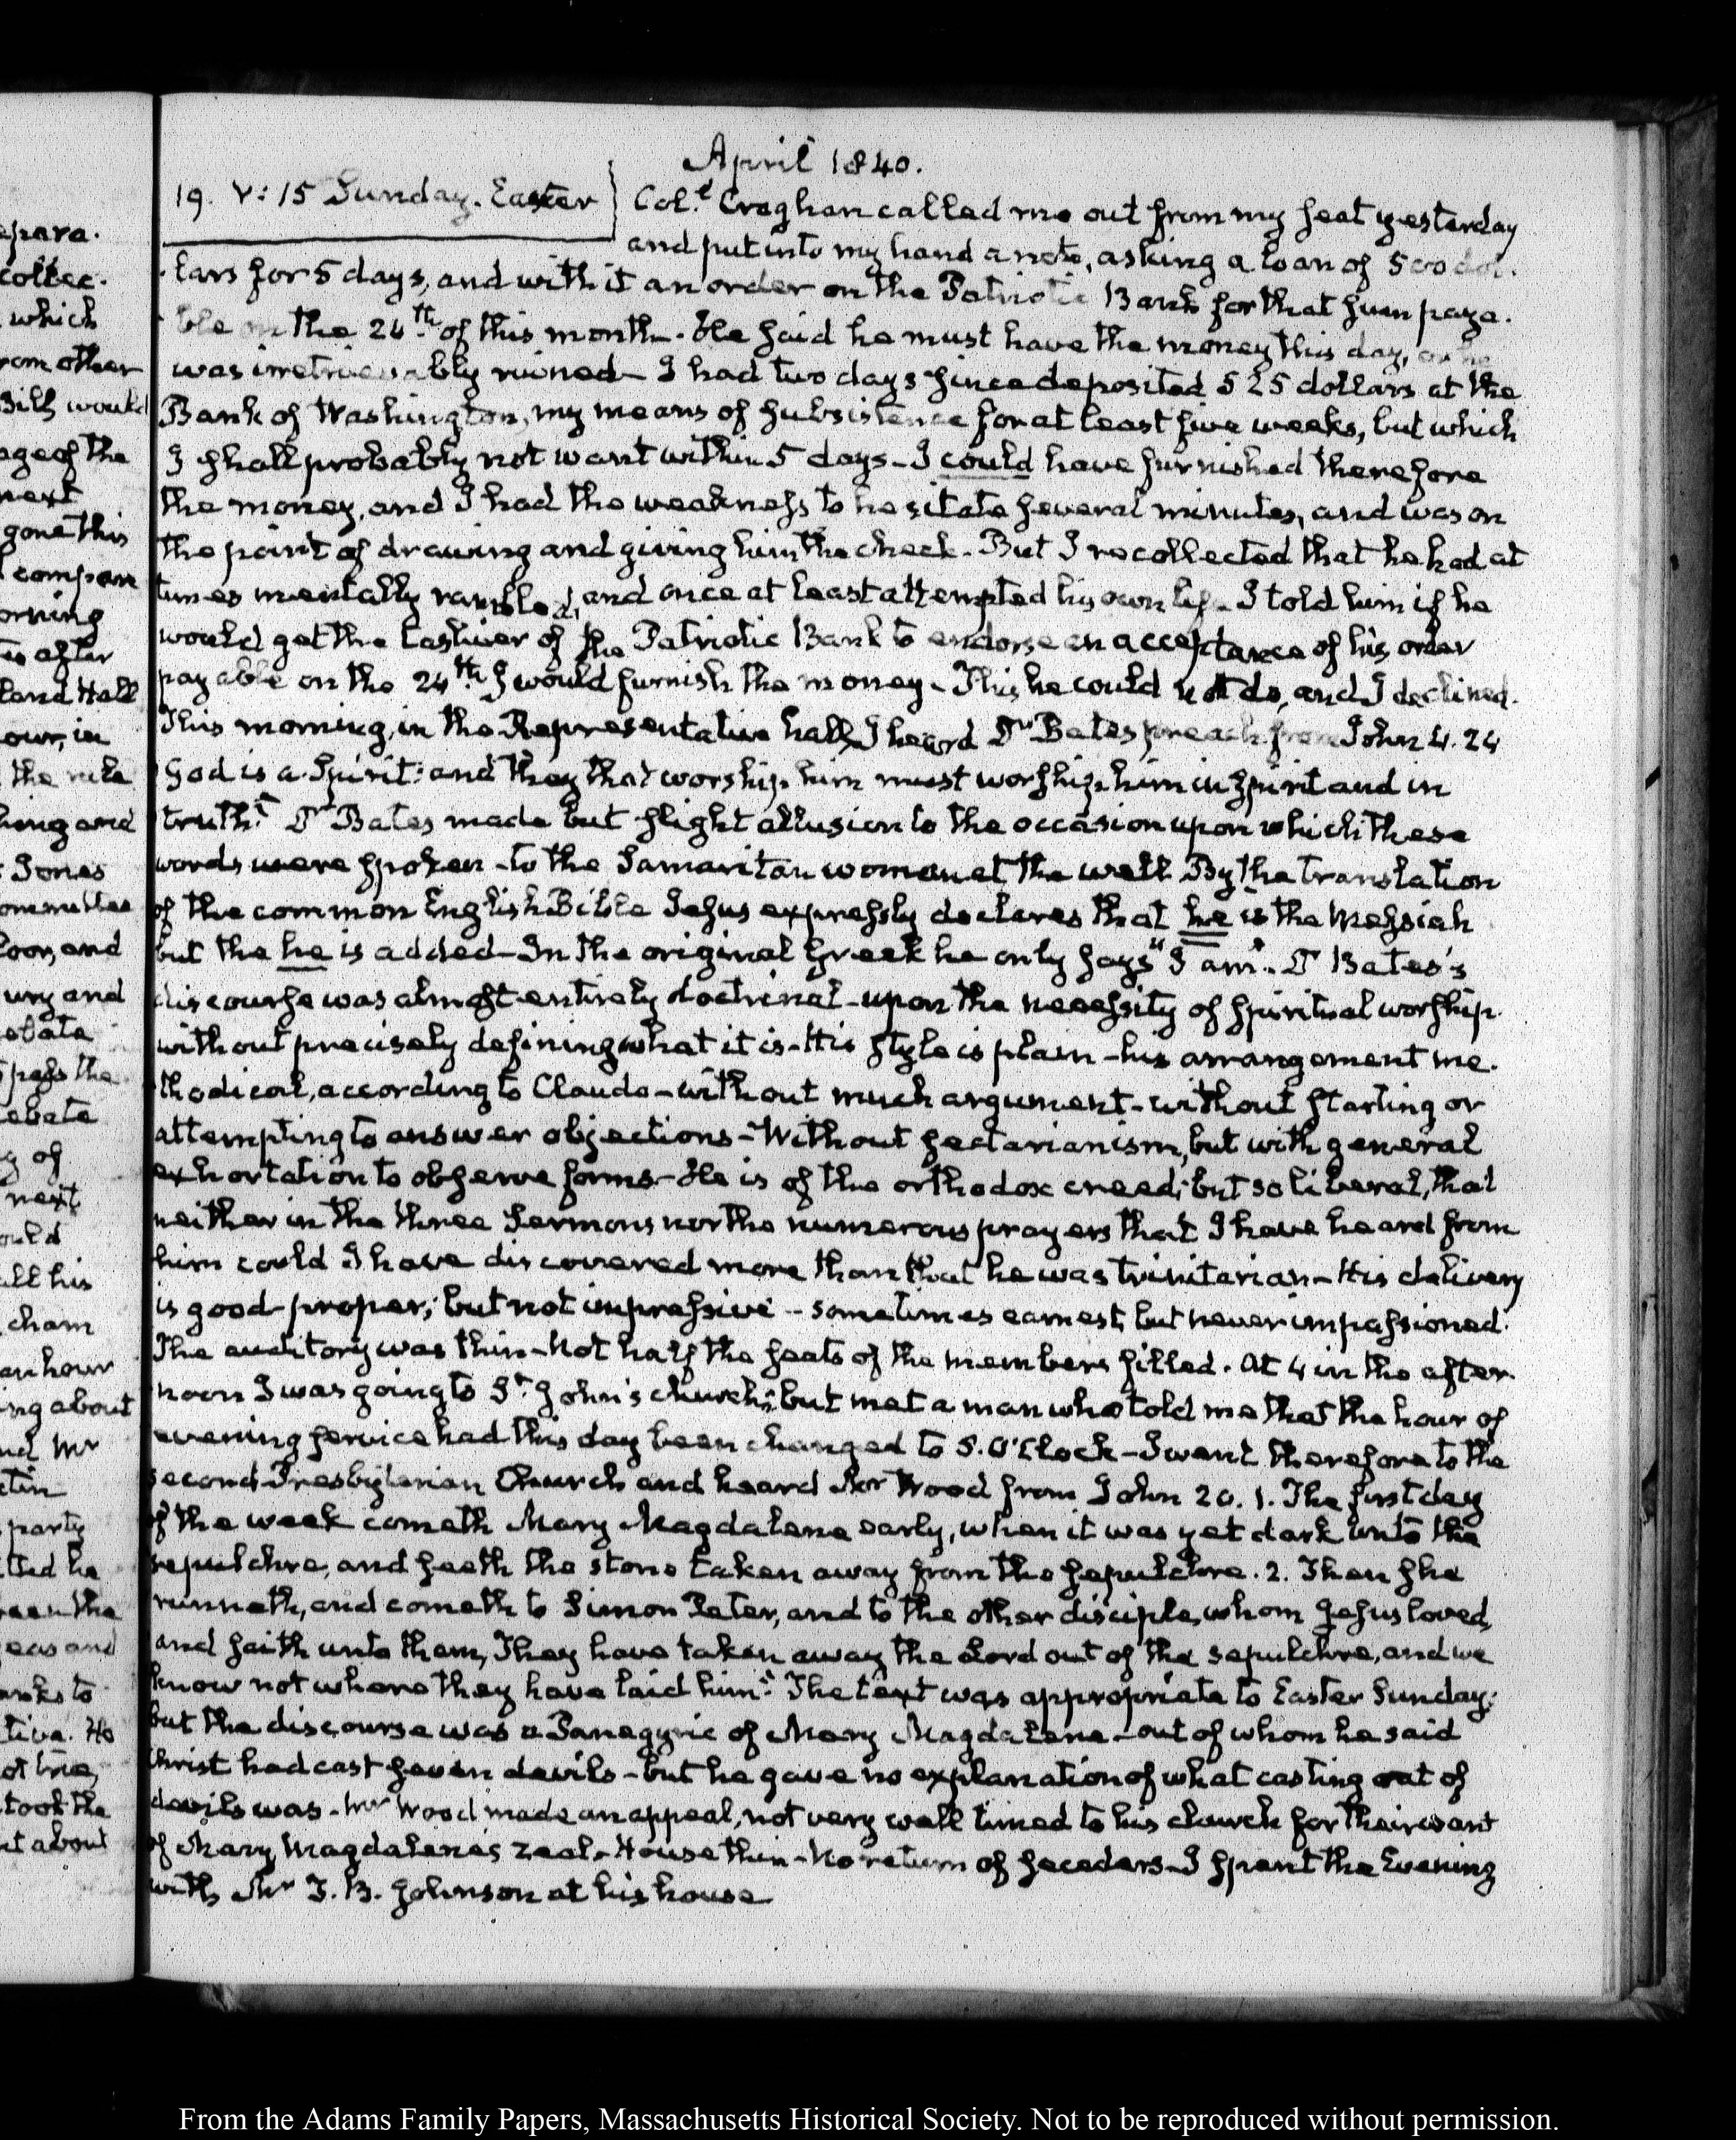 epara.
collec.
which
rom other
Bill would
age of the
next
gone this
compan
orning
es after
land Hall
our, in
the rule
hing and
Jones
ommittee
loor, and
ury and
ebate
pass the
ebate
g of
next
ould
all his
cham
an hour
ing about
nd Mr
tin
party
ted he
een the
eas and
anks to
tive. He
ot line,
took the
nt about
April 1840.
19. V: 15 Sunday. Easter
Col.l Croghan called me out from my seat yesterday
and put into my hand a note, asking a loan of 500 dol-
lars for 5 days, and with it an order on the Patriotic Bank for that sum paya-
ble on the 24th of this month. He said he must have the money this day, or he
was irretrievably ruined— I had two days since deposited 525 dollars at the
Bank of Washington, my means of subsistence for at least five weeks, but which
I shall probably not want within 5 days— I could have furnished therefore
the money, and I had the weakness to hesitate several minutes, and was on
the point of drawing and giving him the check. But I recollected that he had at
times mentally rambled, and once at least attempted his own life— I told him if he
would get the Cashier of the Patriotic Bank to endorse an acceptance of his order
payable on the 24th I would furnish the money— This he could not do, and I declined.
This morning, in the Representative hall, I heard Dr Bates preach from John 4. 24
God is a Spirit: and they that worship him must worship him in spirit and in
truth." Dr Bates made but slight allusion to the occasion upon which these
words were spoken—to the Samaritan woman at the well By the translation
of the common English Bible Jesus expressly declares that he is the Messiah
but the he is added—In the original Greek he only says "I am". Dr Bates's
discourse was almost entirely doctrinal—upon the necessity of spiritual worship.
without precisely defining what it is—His style is plain—his arrangement me-
thodical, according to Claude—without much argument—without starting or
attempting to answer objections—Without sectarianism, but with general
exhortation to observe forms—He is of the orthodox creed; but so liberal, that
neither in the three Sermons nor the numerous prayers that I have heard from
him could I have discovered more than that he was trinitarian—His delivery
is good—proper; but not impressive—sometimes earnest, but never impassioned.
The auditory was thin—Not half the seats of the members filled. At 4 in the after-
noon I was going to St. John's church; but met a man who told me that the hour of
evening service had this day been changed to 5. O'Clock—I went therefore to the
second Presbyterian Church and heard Mr Wood from John 20. 1. The first day
of the week cometh Mary Magdalene early, when it was yet dark unto the
sepulchre, and seeth the stone taken away from the sepulchre. 2. Then she
runneth, and cometh to Simon Peter, and to the other disciple, whom Jesus loved,
and saith unto them, They have taken away the Lord out of the sepulchre, and we
know not where they have laid him." The text was appropriate to Easter Sunday;
but the discourse was a Panegyric of Mary Magdalene—out of whom he said
Christ had cast seven devils—but he gave no explanation of what casting out of
devils was. Mr Wood made an appeal, not very well timed to his church for their want
of Mary Magdalene's zeal—House thin—No return of seceders—I spent the Evening
with Mr J. B. Johnson at his house
From the Adams Family Papers, Massachusetts Historical Society. Not to be reproduced without permission.